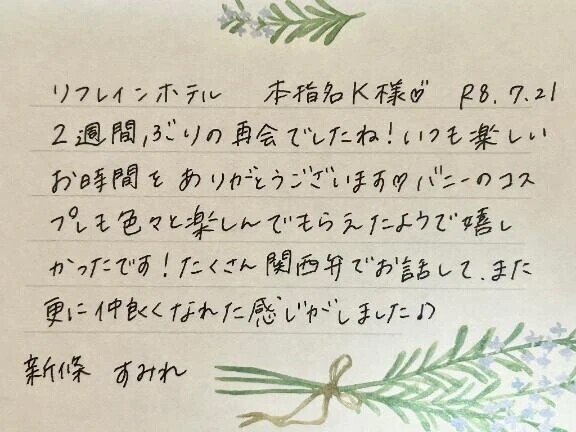 リフレインホテル 本指名K様♡ R8.7.21
2週間ぶりの再会でしたね！いつも楽しい
お時間をありがとうございます♡バニーのコス
プレも色々と楽しんでもらえたようで嬉し
かったです！たくさん関西弁でお話して、また
更に仲良くなれた感じがしました♪
新條 すみれ